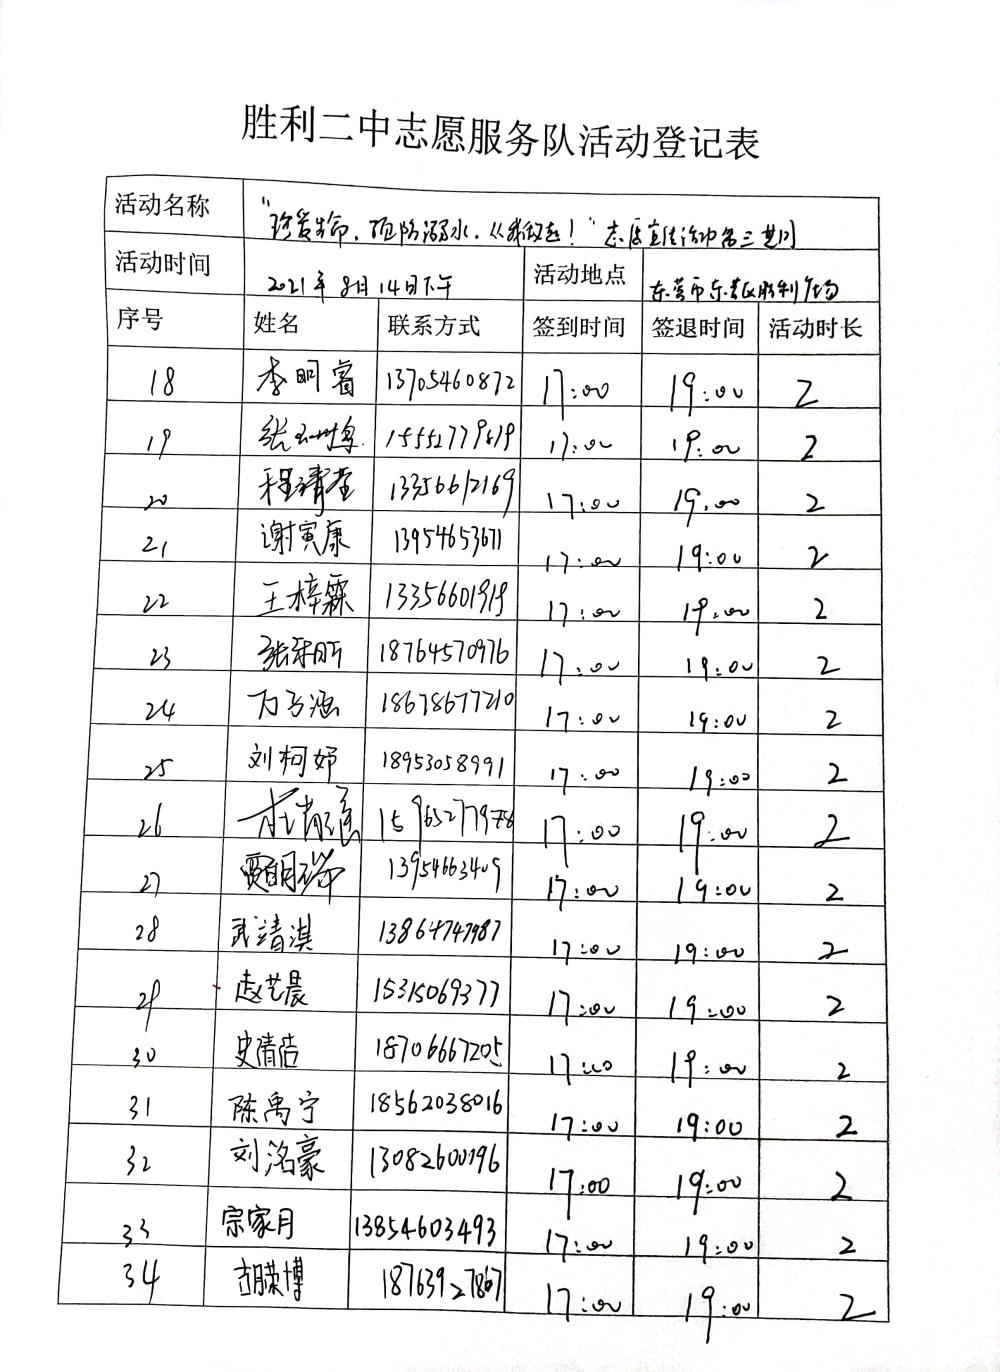 胜利二中志愿服务队活动登记表
活动名称 "珍爱生命，预防溺水，从我做起！"志愿宣传活动第三期
活动时间 2021年8月14日下午 活动地点 东营市东营区胜利广场
序号 姓名 联系方式 签到时间 签退时间 活动时长
18 李明睿 13705460872 17:00 19:00 2
19 15552779619 17:00 19:00 2
20 程靖萱 13356612169 17:00 19:00 2
21 谢寅康 13954653671 17:00 19:00 2
22 王梓霖 13356601919 17:00 19:00 2
23 18764570976 17:00 19:00 2
24 万子涵 18678677210 17:00 19:00 2
25 刘柯妤 18953058991 17:00 19:00 2
26 17:00 19:00 2
27 贾明瑞 13954663409 17:00 19:00 2
28 武靖淇 13864747987 17:00 19:00 2
29 赵艺晨 15315069377 17:00 19:00 2
30 史清浩 18706667205 17:00 19:00 2
31 陈禹宁 18562038016 17:00 19:00 2
32 刘洺豪 13082600196 17:00 19:00 2
33 宗家月 13854603493 17:00 19:00 2
34 胡荣博 18763927867 17:00 19:00 2